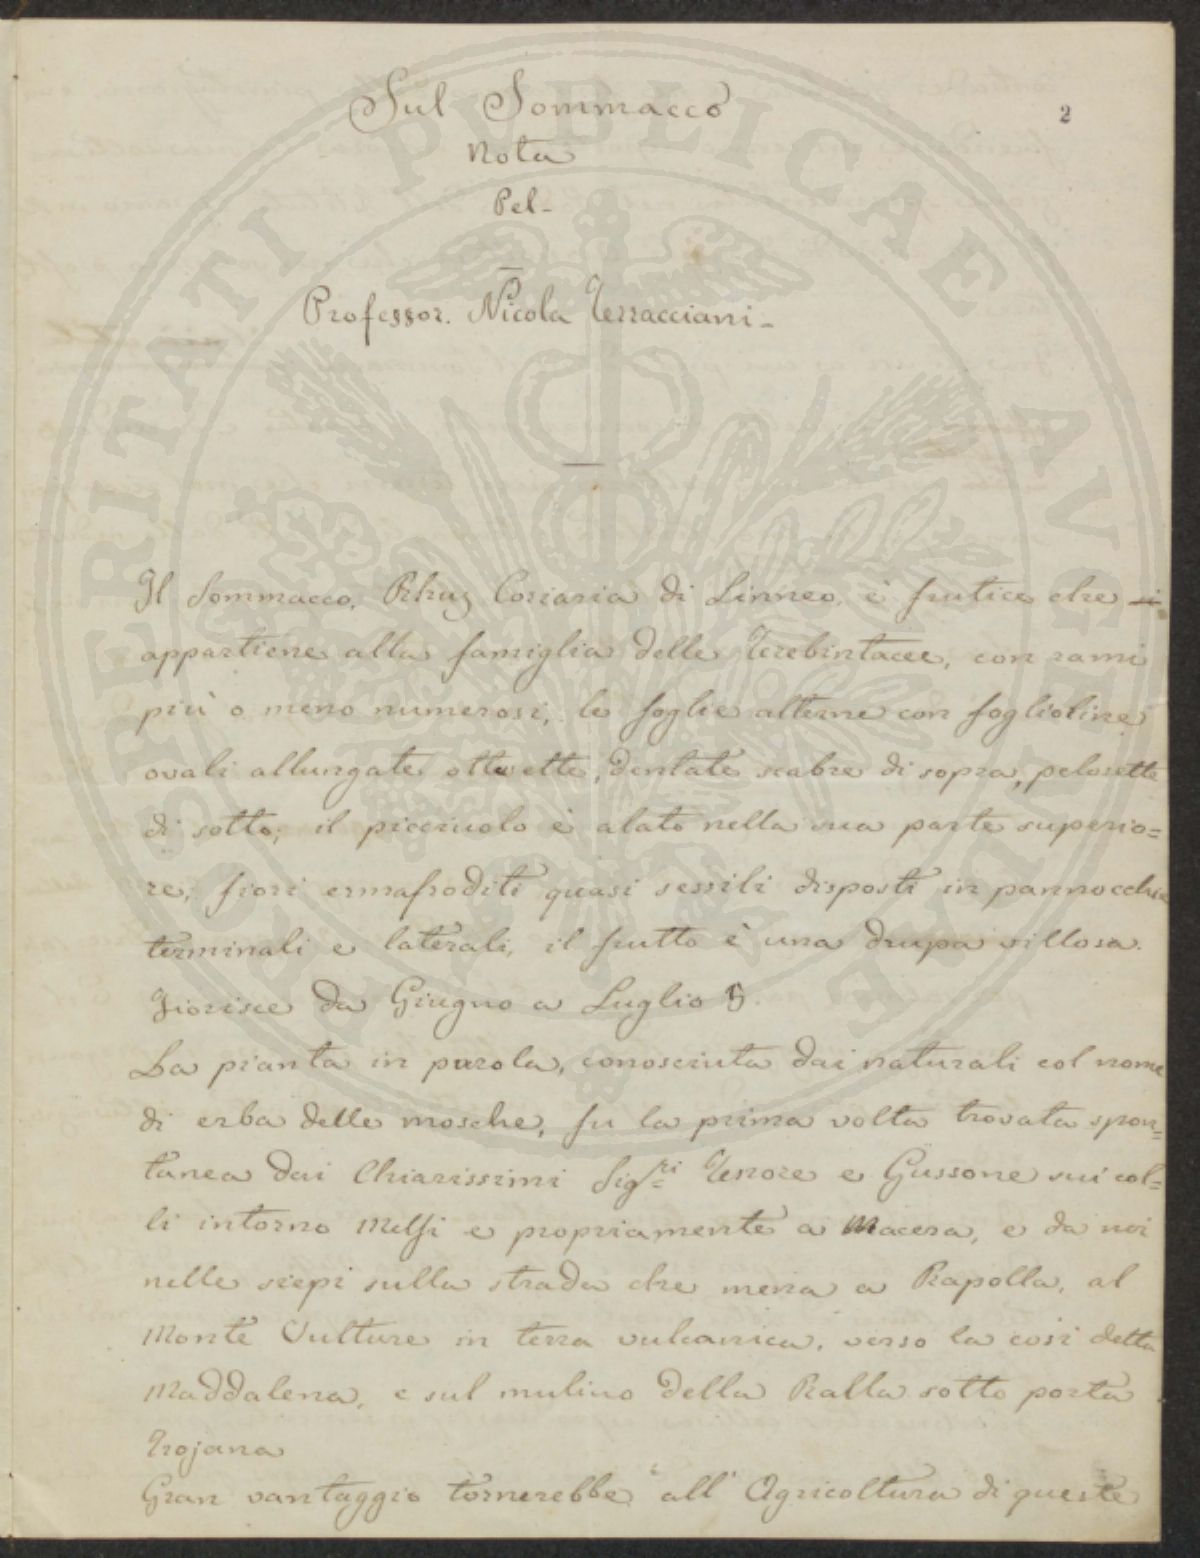 Sul Sommacco
2
Nota
Pel-
Professor. Nicola Terracciani-
Il Sommacco, Rhus Coriaria di Linneo, è frutice che si
appartiene alla famiglia delle Terebintacee, con rami
più o meno numerosi, le foglie alterne con foglioline
ovali allungate ottusette, dentate scabre di sopra, pelosette
di sotto; il picciuolo è alato nella sua parte superio=
re; fiori ermafroditi quasi sessili disposti in pannocchie
terminali e laterali, il frutto è una drupa villosa.
Fiorisce da Giugno a Luglio ♄.
La pianta in parola, conosciuta dai naturali col nome
di erba delle mosche, fu la prima volta trovata spon=
tanea dai Chiarissimi Sig.ri Tenore e Gussone sui col=
li intorno Melfi e propriamente a Macera, e da noi
nelle siepi sulla strada che mena a Rapolla, al
Monte Vulture in terra vulcanica, verso la così detta
Maddalena, e sul mulino della Ralla sotto porta
Trojana
Gran vantaggio tornerebbe all' Agricoltura di queste
PROSPERITATI PUBLICAE AVGENDAE